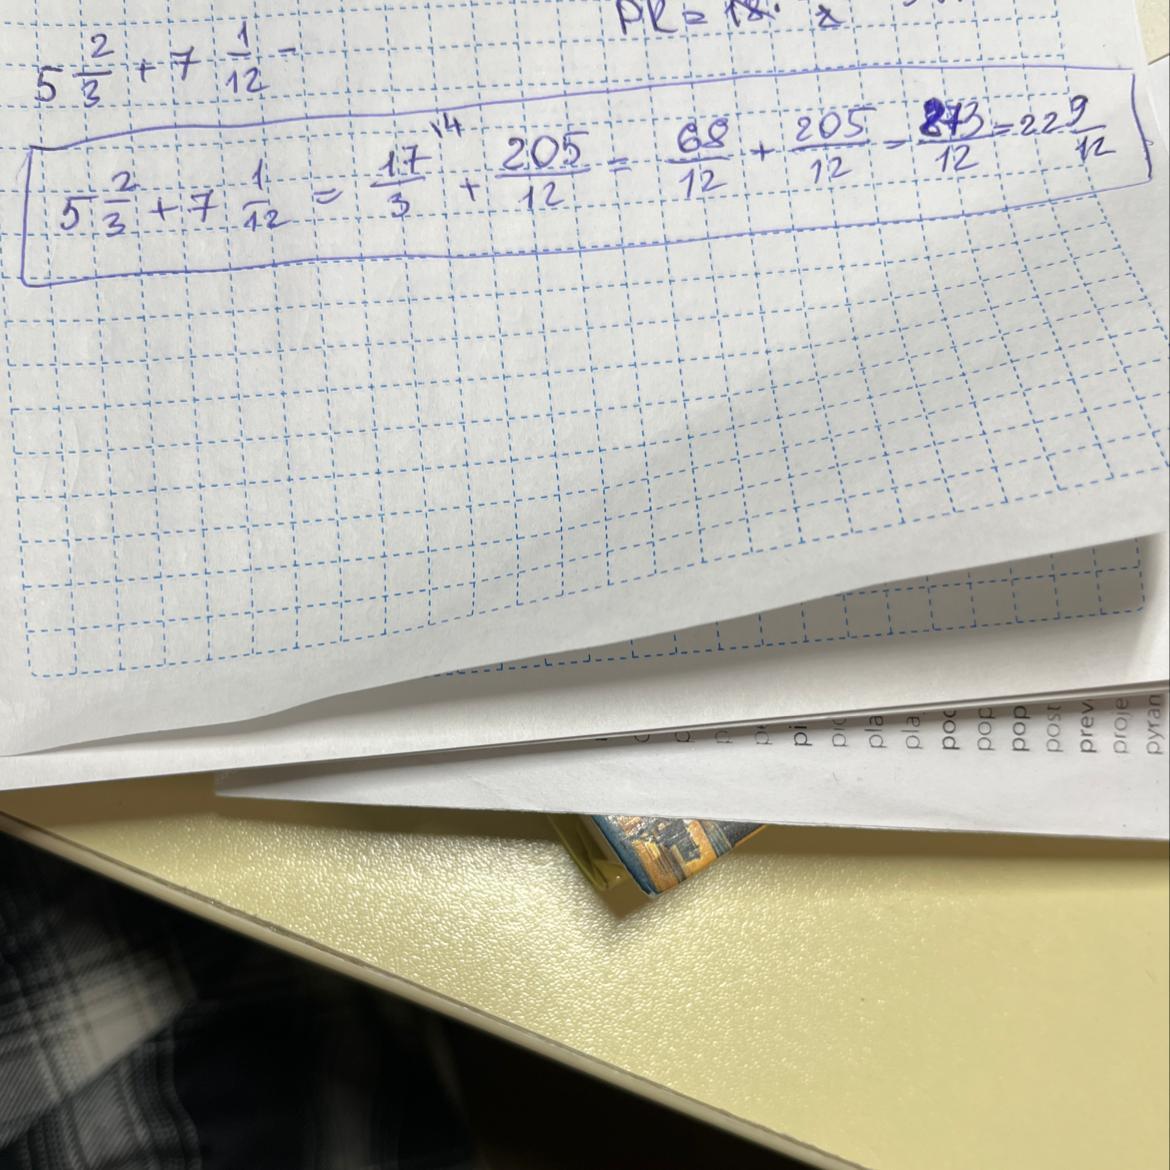 PR =
5 2/3 + 7 1/12 -
5 2/3 + 7 1/12 = 17/3 \4 + 205/12 = 68/12 + 205/12 = 273/12 = 22 9/12
pi
pla
pla
poc
pop
pop
post
prev
proje
pyram